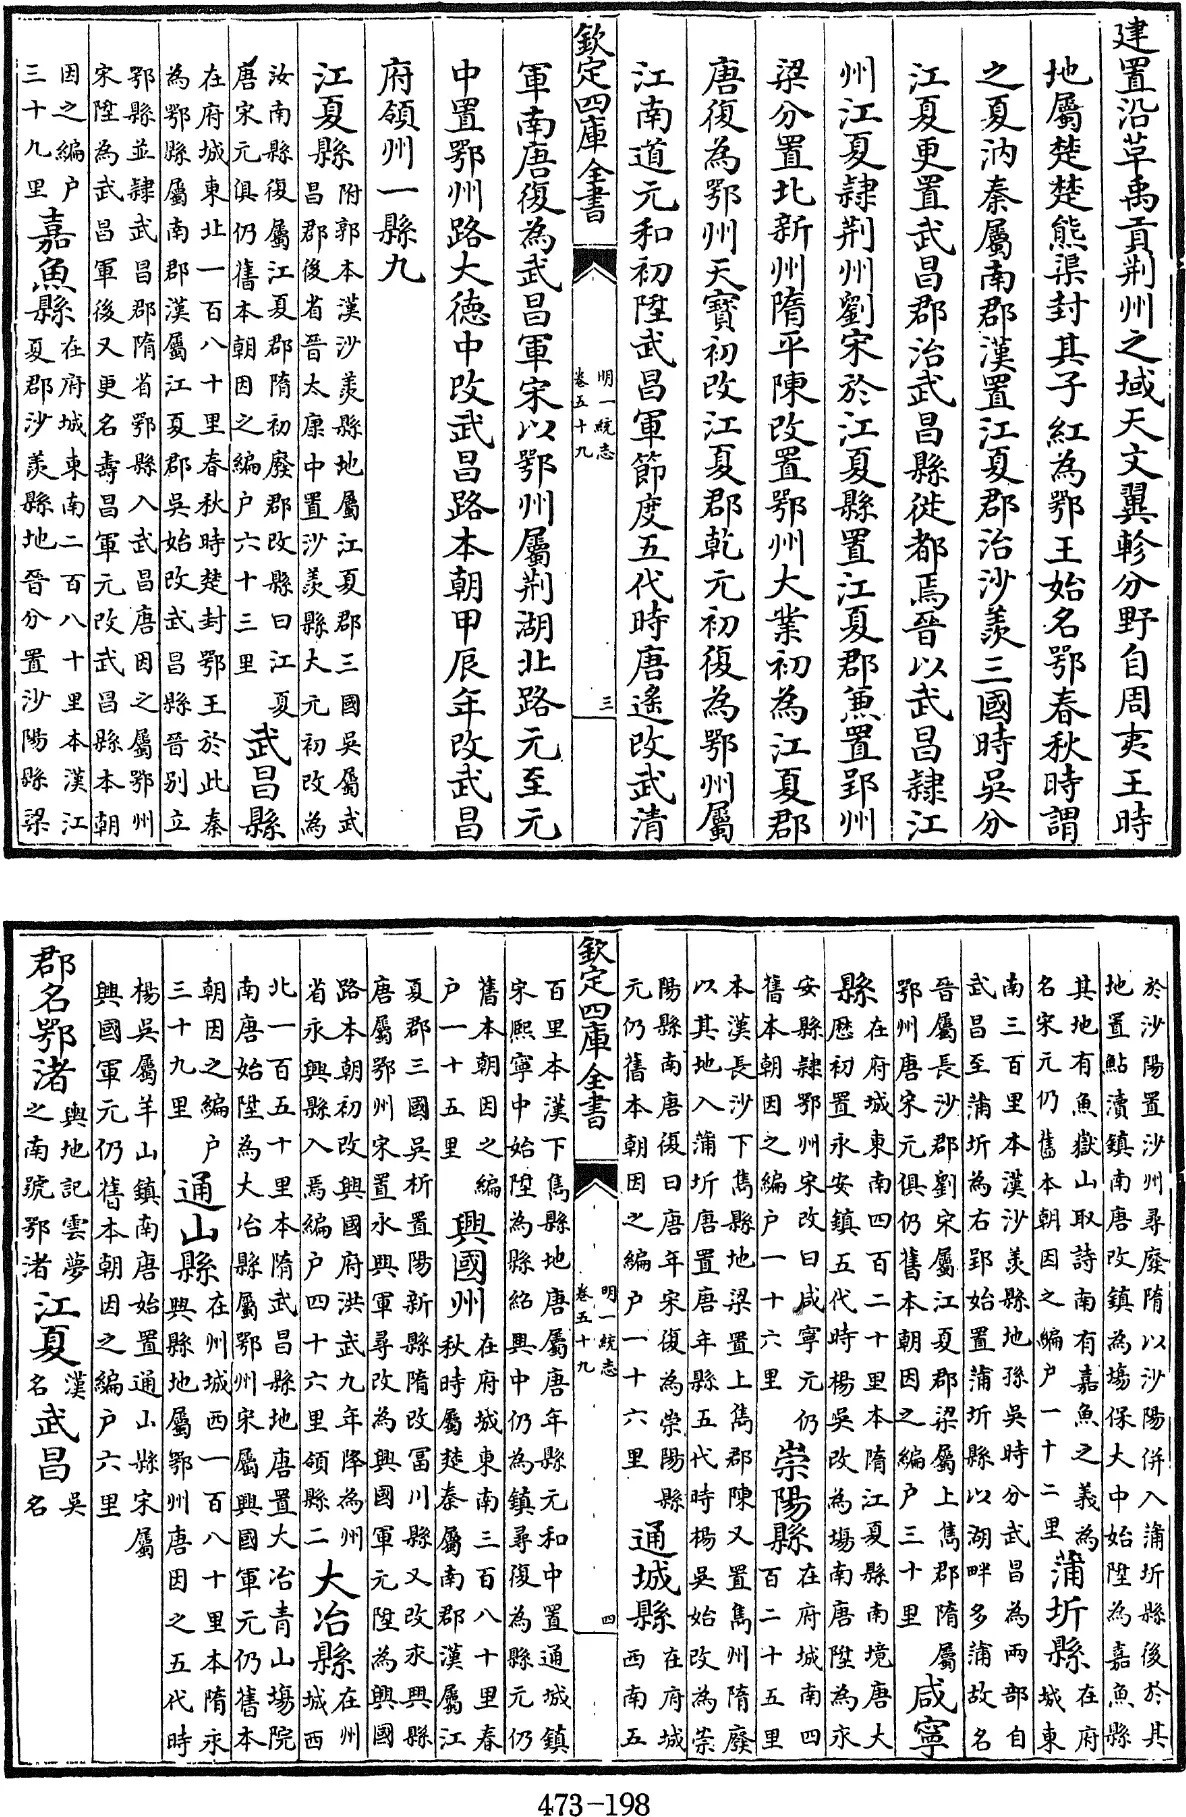 建置沿革禹貢荆州之域天文翼軫分野自周夷王時
地屬楚楚熊渠封其子紅為鄂王始名鄂春秋時謂
之夏汭秦屬南郡漢置江夏郡治沙羡三國時吳分
江夏更置武昌郡治武昌縣徙都焉晉以武昌隸江
州江夏隸荆州劉宋於江夏縣置江夏郡兼置郢州
梁分置北新州隋平陳改置鄂州大業初為江夏郡
唐復為鄂州天寶初改江夏郡乾元初復為鄂州屬
江南道元和初陞武昌軍節度五代時唐遙改武清
欽定四庫全書 明一統志卷五十九 三
軍南唐復為武昌軍宋以鄂州屬荆湖北路元至元
中置鄂州路大德中改武昌路本朝甲辰年改武昌
府領州一縣九
江夏縣附郭本漢沙羡縣地屬江夏郡三國吳屬武昌郡後省晉太康中置沙羡縣大元初改為
汝南縣復屬江夏郡隋初廢郡改縣曰江夏唐宋元俱仍舊本朝因之編户六十三里武昌縣
在府城東北一百八十里春秋時楚封鄂王於此秦為鄂縣屬南郡漢屬江夏郡吳始改武昌縣晉别立
鄂縣並隸武昌郡隋省鄂縣入武昌唐因之屬鄂州宋陞為武昌軍後又更名壽昌軍元改武昌縣本朝
因之編户三十九里嘉魚縣在府城東南二百八十里本漢江夏郡沙羡縣地晉分置沙陽縣梁
於沙陽置沙州尋廢隋以沙陽併入蒲圻縣後於其地置鮎瀆鎮南唐改鎮為塲保大中始陞為嘉魚縣
其地有魚嶽山取詩南有嘉魚之義為名宋元仍舊本朝因之編户一十二里蒲圻縣在府城東
南三百里本漢沙羡縣地孫吳時分武昌為兩部自武昌至蒲圻為右郢始置蒲圻縣以湖畔多蒲故名
晉屬長沙郡劉宋屬江夏郡梁屬上雋郡隋屬鄂州唐宋元俱仍舊本朝因之編户三十里咸寧
縣在府城東南四百二十里本隋江夏縣南境唐大厯初置永安鎮五代時楊吳改為塲南唐陞為永
安縣隸鄂州宋改曰咸寧元仍舊本朝因之編户一十六里崇陽縣在府城南四百二十五里
本漢長沙下雋縣地梁置上雋郡陳又置雋州隋廢以其地入蒲圻唐置唐年縣五代時楊吳始改為崇
陽縣南唐復曰唐年宋復為崇陽縣元仍舊本朝因之編户一十六里通城縣在府城西南五
欽定四庫全書 明一統志卷五十九 四
百里本漢下雋縣地唐屬唐年縣元和中置通城鎮宋熙寧中始陞為縣紹興中仍為鎮尋復為縣元仍
舊本朝因之編户一十五里興國州在府城東南三百八十里春秋時屬楚秦屬南郡漢屬江
夏郡三國吳析置陽新縣隋改富川縣又改永興縣唐屬鄂州宋置永興軍尋改為興國軍元陞為興國
路本朝初改興國府洪武九年降為州省永興縣入焉編户四十六里領縣二大冶縣在州城西
北一百五十里本隋武昌縣地唐置大冶青山塲院南唐始陞為大冶縣屬鄂州宋屬興國軍元仍舊本
朝因之編户三十九里通山縣在州城西一百八十里本隋永興縣地屬鄂州唐因之五代時
楊吳屬羊山鎮南唐始置通山縣宋屬興國軍元仍舊本朝因之編户六里
郡名鄂渚輿地記雲夢之南號鄂渚江夏漢名武昌吳名
473-198